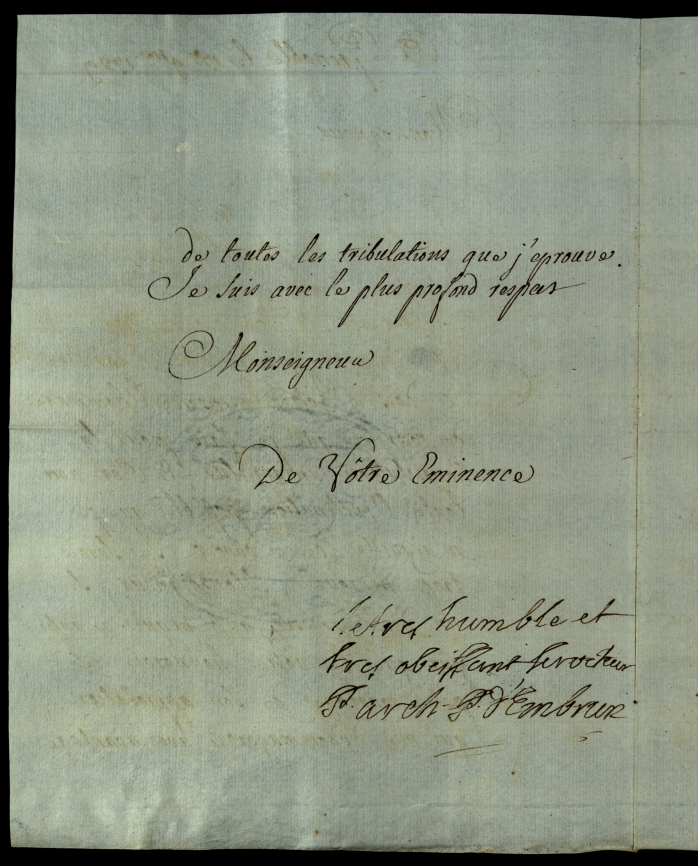 de toutes les tribulations que j'eprouve.
Je suis avec le plus profond respect
Monseigneur
De Vôtre Eminence
le tres humble et
tres obeissant serviteur
P. arch. P. d'Embrun